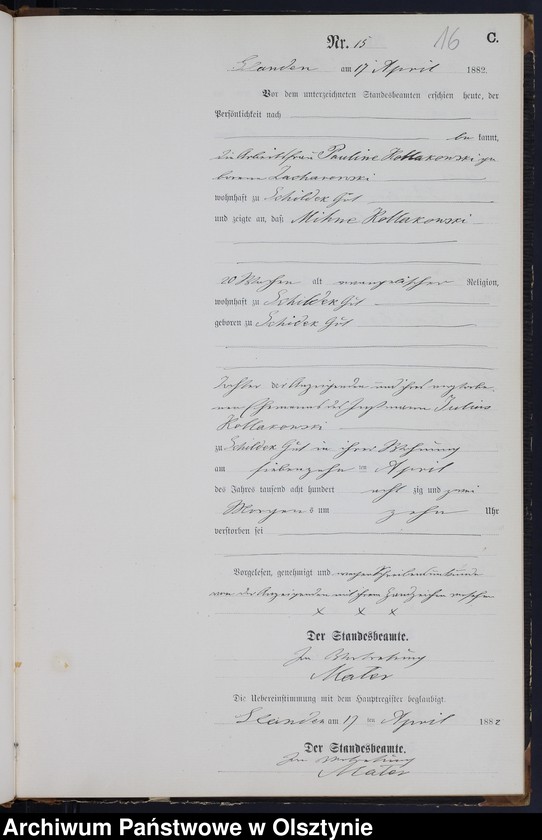 16 C.
Nr. 15
am 17 April 1882.
Vor dem unterzeichneten Standesbeamten erschien heute, der
Persönlichkeit nach
be kannt,
die Arbeitsfrau Pauline Kollakowski ge
borene Zacharowski
wohnhaft zu Schildek Gut
und zeigte an, daß Mihne Kollakowski
Wochen alt evangelischer Religion,
wohnhaft zu Schildek Gut
geboren zu Schildek Gut
Tochter der Anzeigenden und ihres verstorbe
nen Ehemanns des Julius
Kollakowski
zu Schildek Gut in ihrer Wohnung
am siebenzehn ten April
des Jahres tausend acht hundert acht zig und zwei
Morgens um zehn Uhr
verstorben sei
Vorgelesen, genehmigt und wegen Schreibensunkunde
von der Anzeigenden mit ihrem Handzeichen versehen
x x x
Der Standesbeamte.
In Vertretung
Mater
Die Uebereinstimmung mit dem Hauptregister beglaubigt.
am 17 ten April 1882
Der Standesbeamte.
In Vertretung
Mater
Archiwum Państwowe w Olsztynie